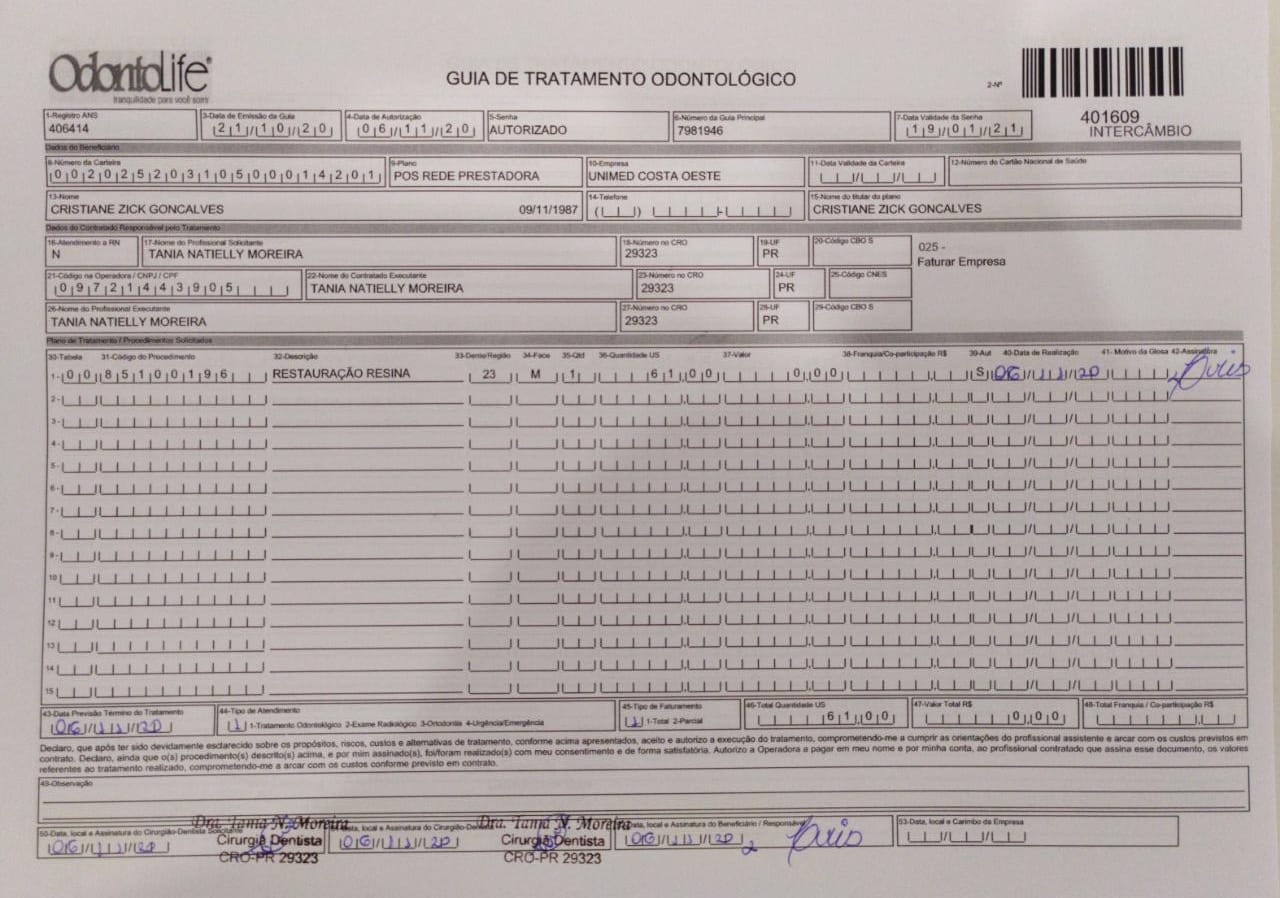 OdontoLife®
tranquilidade para você sorrir
GUIA DE TRATAMENTO ODONTOLÓGICO
2-Nº
401609
INTERCÂMBIO
1-Registro ANS
406414
3-Data de Emissão da Guia
21/10/20
4-Data de Autorização
06/11/20
5-Senha
AUTORIZADO
6-Número da Guia Principal
7981946
7-Data Validade da Senha
19/01/21
Dados do Beneficiário
8-Número da Carteira
00202520310500014201
9-Plano
POS REDE PRESTADORA
10-Empresa
UNIMED COSTA OESTE
11-Data Validade da Carteira
12-Número do Cartão Nacional de Saúde
13-Nome
CRISTIANE ZICK GONCALVES 09/11/1987
14-Telefone
15-Nome do titular do plano
CRISTIANE ZICK GONCALVES
Dados do Contratado Responsável pelo Tratamento
16-Atendimento a RN
N
17-Nome do Profissional Solicitante
TANIA NATIELLY MOREIRA
18-Número no CRO
29323
19-UF
PR
20-Código CBO S
025 -
Faturar Empresa
21-Código na Operadora / CNPJ / CPF
09721443905
22-Nome do Contratado Executante
TANIA NATIELLY MOREIRA
23-Número no CRO
29323
24-UF
PR
25-Código CNES
26-Nome do Profissional Executante
TANIA NATIELLY MOREIRA
27-Número no CRO
29323
28-UF
PR
29-Código CBO S
Plano de Tratamento / Procedimentos Solicitados
30-Tabela 31-Código do Procedimento 32-Descrição 33-Dente/Região 34-Face 35-Qtd 36-Quantidade US 37-Valor 38-Franquia/Co-participação R$ 39-Aut 40-Data de Realização 41- Motivo da Glosa 42-Assinatura
1- 00 85100196 RESTAURAÇÃO RESINA 23 M 1 61,00 0,00 S 06/11/20
2-
3-
4-
5-
6-
7-
8-
9-
10
11
12
13
14
15
43-Data Previsão Término do Tratamento
06/11/20
44-Tipo de Atendimento
1 1-Tratamento Odontológico 2-Exame Radiológico 3-Ortodontia 4-Urgência/Emergência
45-Tipo de Faturamento
1 1-Total 2-Parcial
46-Total Quantidade US
61,00
47-Valor Total R$
0,00
48-Total Franquia / Co-participação R$
Declaro, que após ter sido devidamente esclarecido sobre os propósitos, riscos, custos e alternativas de tratamento, conforme acima apresentados, aceito e autorizo a execução do tratamento, comprometendo-me a cumprir as orientações do profissional assistente e arcar com os custos previstos em
contrato. Declaro, ainda que o(s) procedimento(s) descrito(s) acima, e por mim assinado(s), foi/foram realizado(s) com meu consentimento e de forma satisfatória. Autorizo a Operadora a pagar em meu nome e por minha conta, ao profissional contratado que assina esse documento, os valores
referentes ao tratamento realizado, comprometendo-me a arcar com os custos conforme previsto em contrato.
49-Observação
50-Data, local e Assinatura do Cirurgião-Dentista Solicitante
06/11/20
Dra. Tania N. Moreira
Cirurgiã Dentista
CRO-PR 29323
Data, local e Assinatura do Cirurgião-Dentista
06/11/20
Dra. Tania N. Moreira
Cirurgiã Dentista
CRO-PR 29323
Data, local e Assinatura do Beneficiário / Responsável
06/11/20
53-Data, local e Carimbo da Empresa